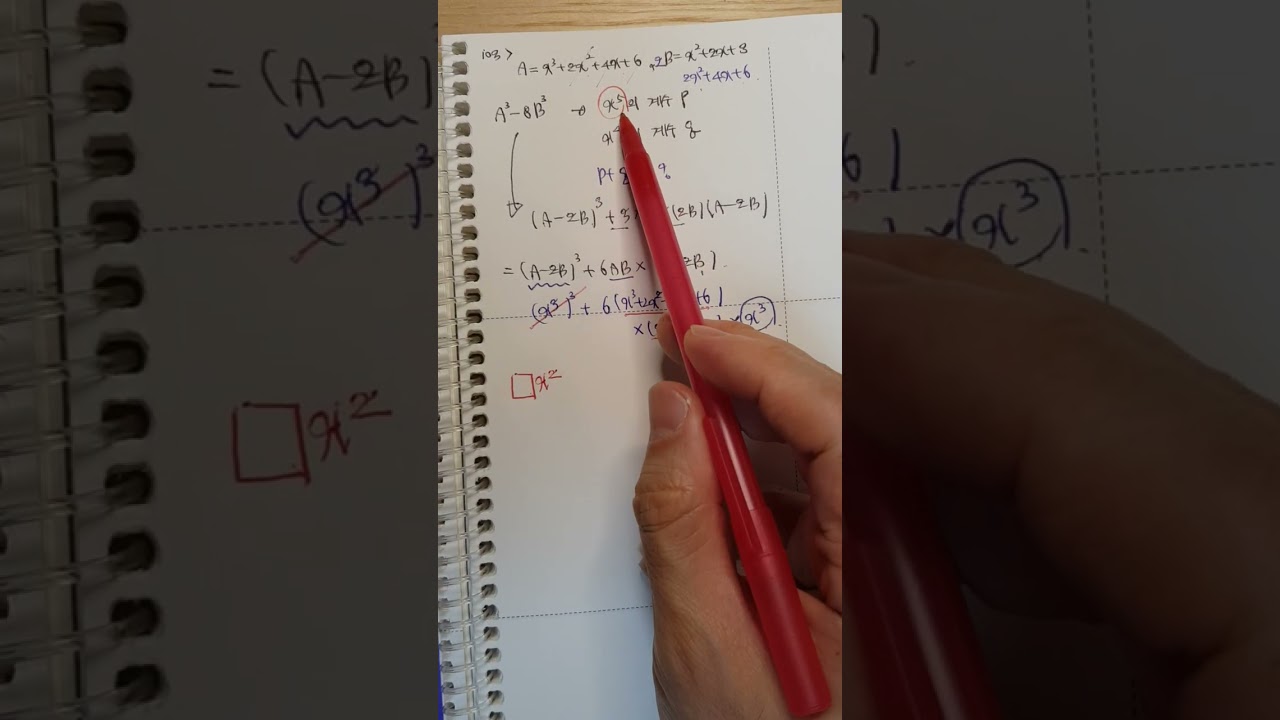 103>
A = x³+2x²+4x+6 , 2B = x²+2x+3
2x²+4x+6
A³-8B³ → x⁵의 계수 p
계수 q
p+
(A-2B)³ + 3 (2B)(A-2B)
= (A-2B)³ + 6AB × 2B)
(x³)³ + 6(x³+2x² +6)
×( ) × x³
□x²